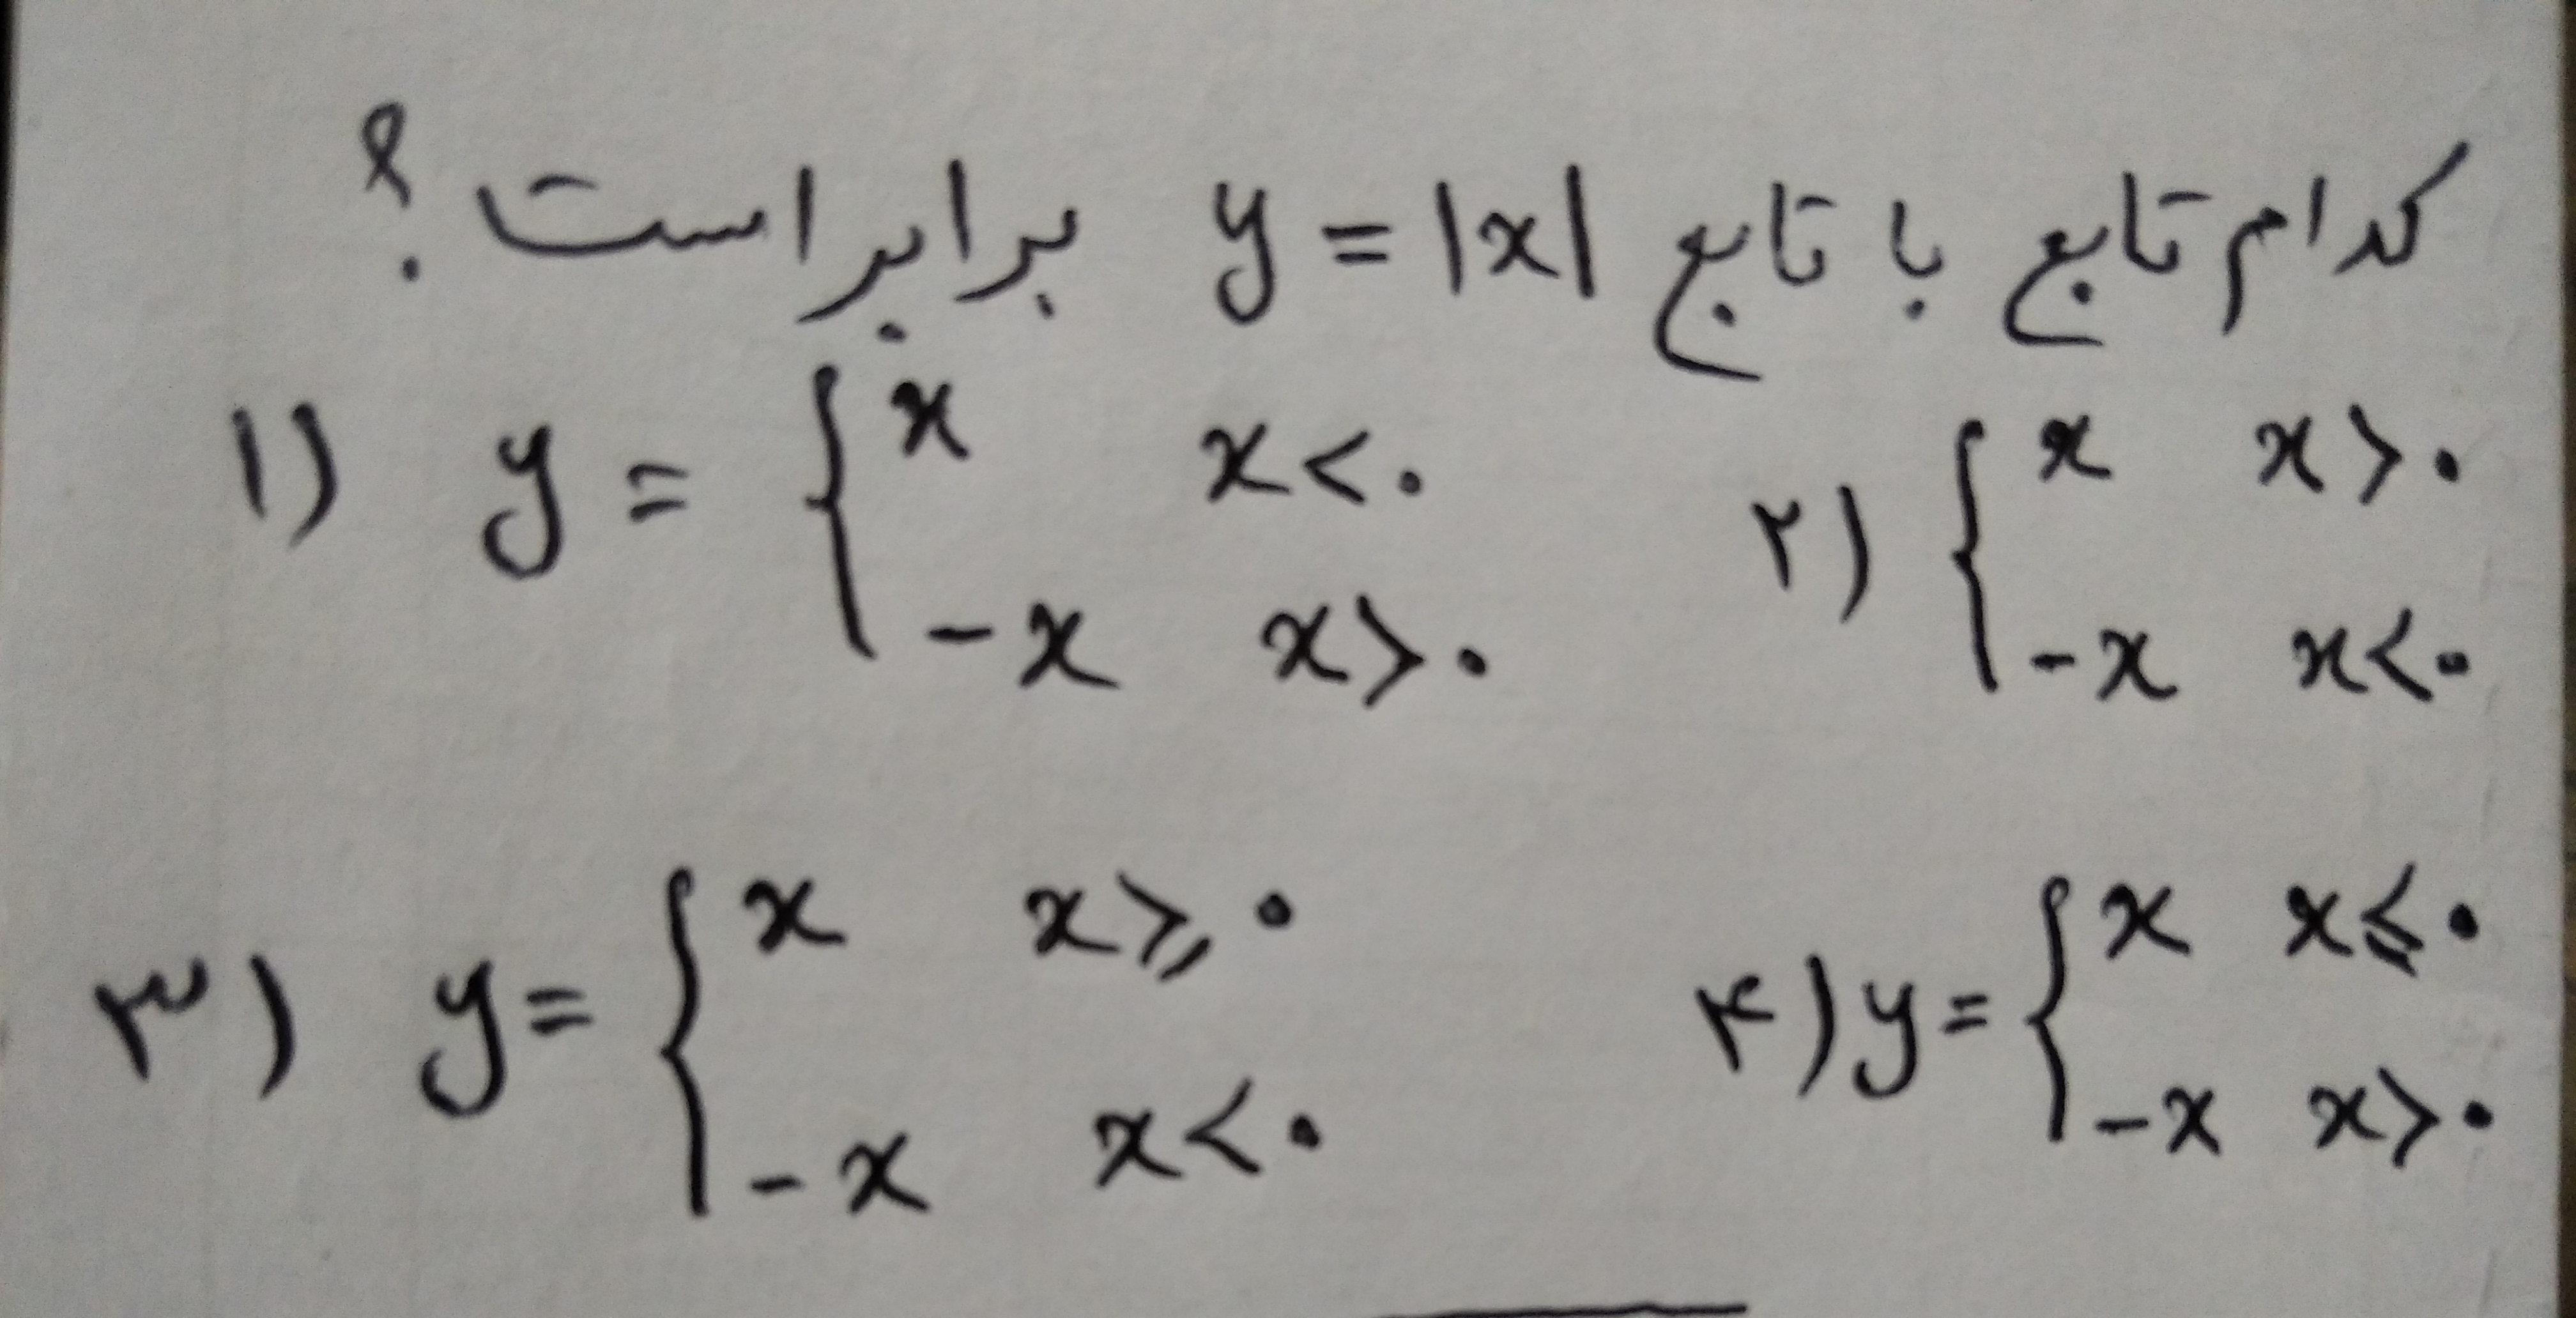 کدام تابع با تابع y = |x| برابر است ؟
۱) y = { x x < ۰
-x x > ۰
۲) { x x > ۰
-x x < ۰
۳) y = { x x ⩾ ۰
-x x < ۰
۴) y = { x x ⩽ ۰
-x x > ۰